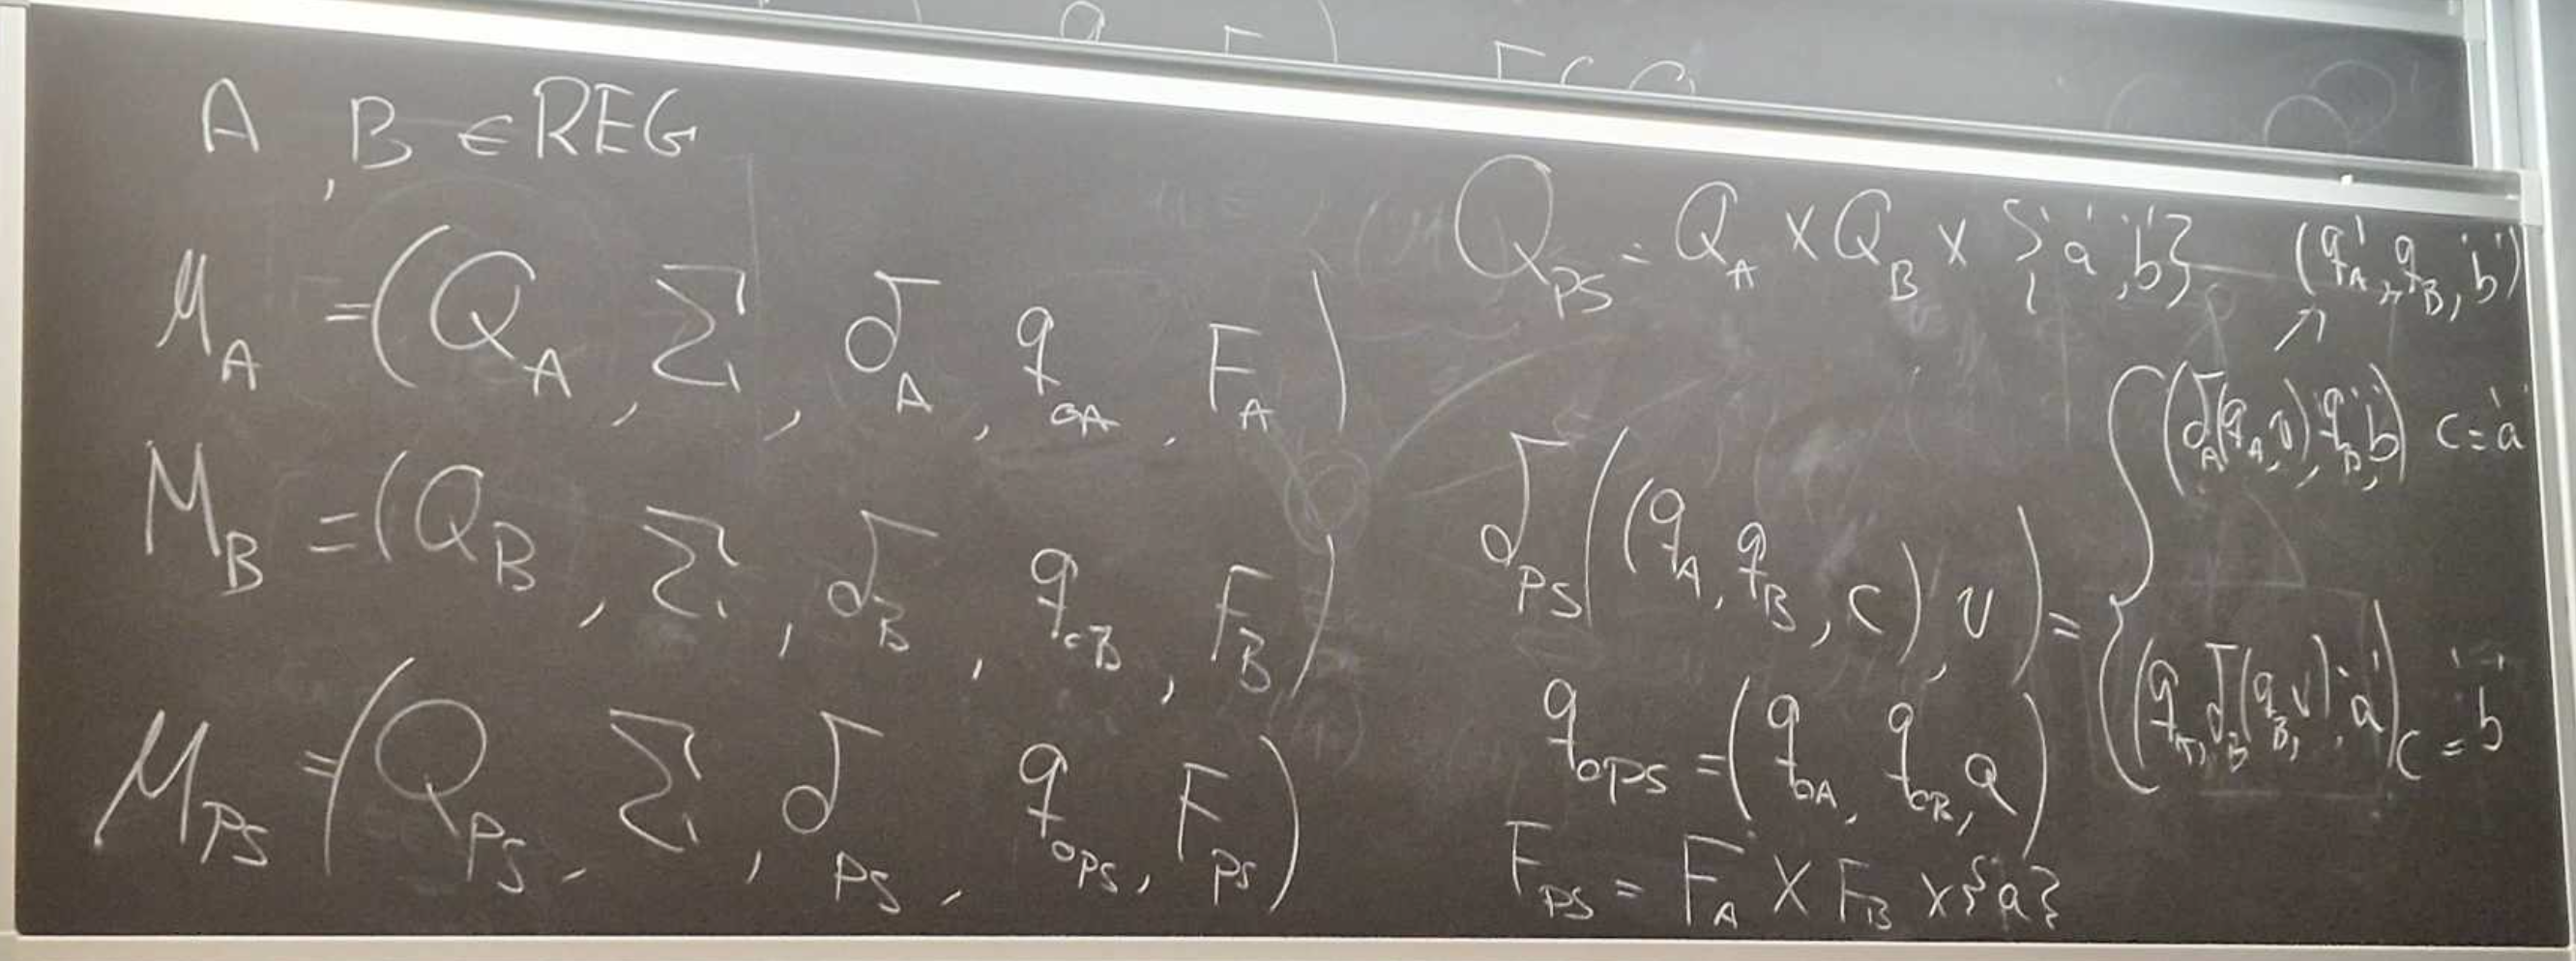 A, B ∈ REG
M_A = (Q_A, Σ, δ_A, q_{0A}, F_A)
M_B = (Q_B, Σ, δ_B, q_{0B}, F_B)
M_{PS} = (Q_{PS}, Σ, δ_{PS}, q_{0PS}, F_{PS})
Q_{PS} = Q_A × Q_B × {'a', 'b'}
(q'_A, q_B, 'b')
↗
δ_{PS}((q_A, q_B, c), v) = {
(δ_A(q_A, v), q_B, 'b') c = 'a'
(q_A, δ_B(q_B, v), 'a') c = 'b'
q_{0PS} = (q_{0A}, q_{0B}, a)
F_{PS} = F_A × F_B × {a}